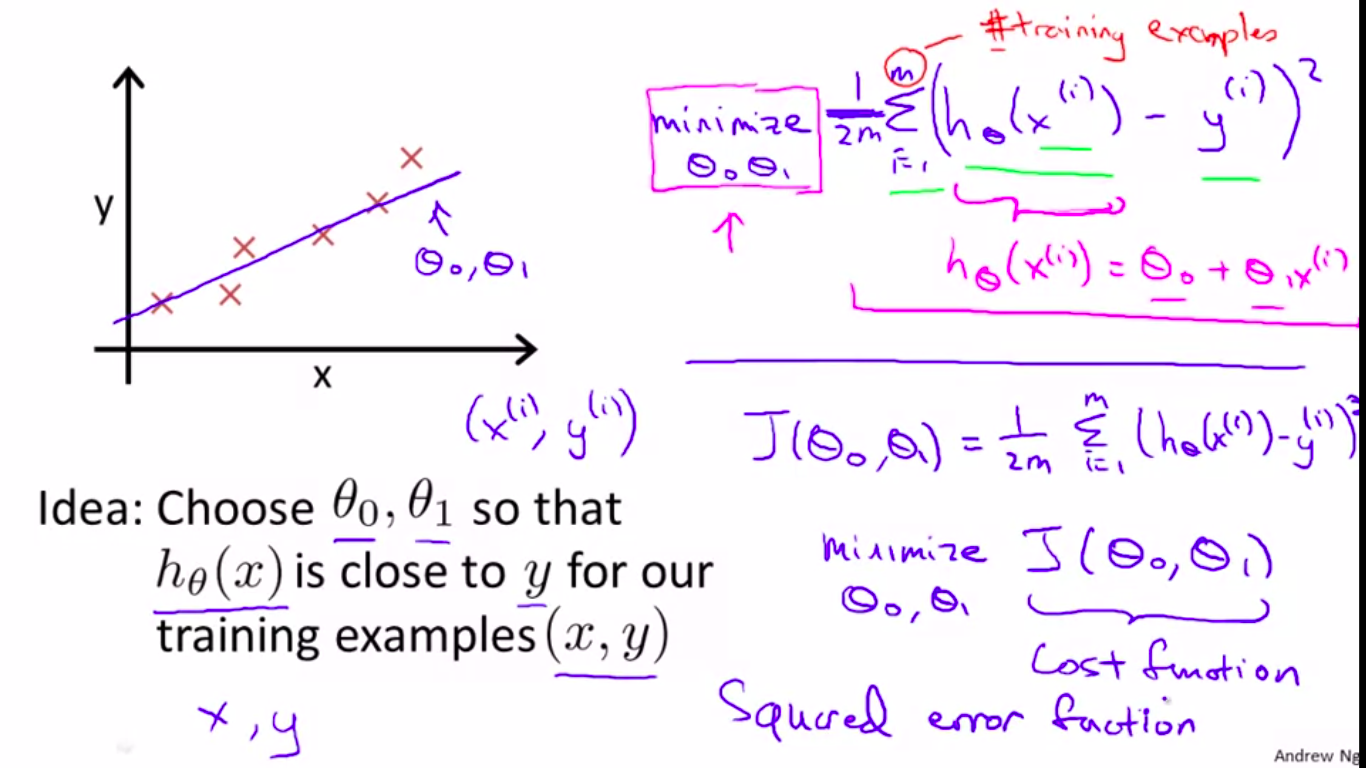 y
x
θ₀, θ₁
(x⁽ⁱ⁾, y⁽ⁱ⁾)
Idea: Choose θ₀, θ₁ so that
h_θ(x) is close to y for our
training examples (x, y)
x, y
#training examples
minimize θ₀ θ₁ 1/2m Σ_{i=1}^{m} (h_θ(x⁽ⁱ⁾) - y⁽ⁱ⁾)²
h_θ(x⁽ⁱ⁾) = θ₀ + θ₁x⁽ⁱ⁾
J(θ₀, θ₁) = 1/2m Σ_{i=1}^{m} (h_θ(x⁽ⁱ⁾) - y⁽ⁱ⁾)²
minimize J(θ₀, θ₁)
θ₀, θ₁
Cost function
Squared error faction
Andrew Ng